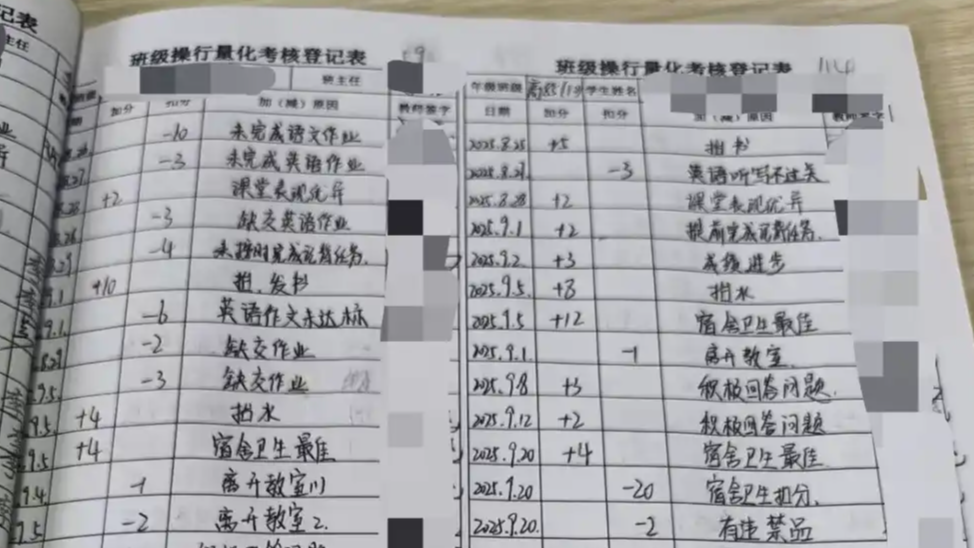 班级操行量化考核登记表
班主任
加分 扣分 加（减）原因 教师签字
-10 未完成语文作业
8.27 -3 未完成英语作业
+2 课堂表现优异
-3 缺交英语作业
-4 未按时完成记背任务.
9.1 +10 担.发书
9.1. -6 英语作文未达标
-2 缺交作业
9.5. -3 缺交作业
9.5. +4 担水
9.5 +4 宿舍卫生最佳
9.4. -1 离开教室
9.5. -2 离开教室2.
班级操行量化考核登记表
年级班级 学生姓名
日期 加分 扣分 加（减）原因 教师签字
2025.8.25 +5 担书
2025.8.27. -3 英语听写不过关
2025.8.28 +2 课堂表现优异
2025.9.1 +2 提前完成记背任务.
2025.9.2. +3 成绩进步
2025.9.5. +8 担水
2025.9.5 +12 宿舍卫生最佳
2025.9.1. -1 离开教室.
2025.9.8 +3 积极回答问题.
2025.9.12 +2 积极回答问题
2025.9.20 +4 宿舍卫生最佳
2025.9.20 -20 宿舍卫生扣分.
2025.9.20. -2 有违禁品